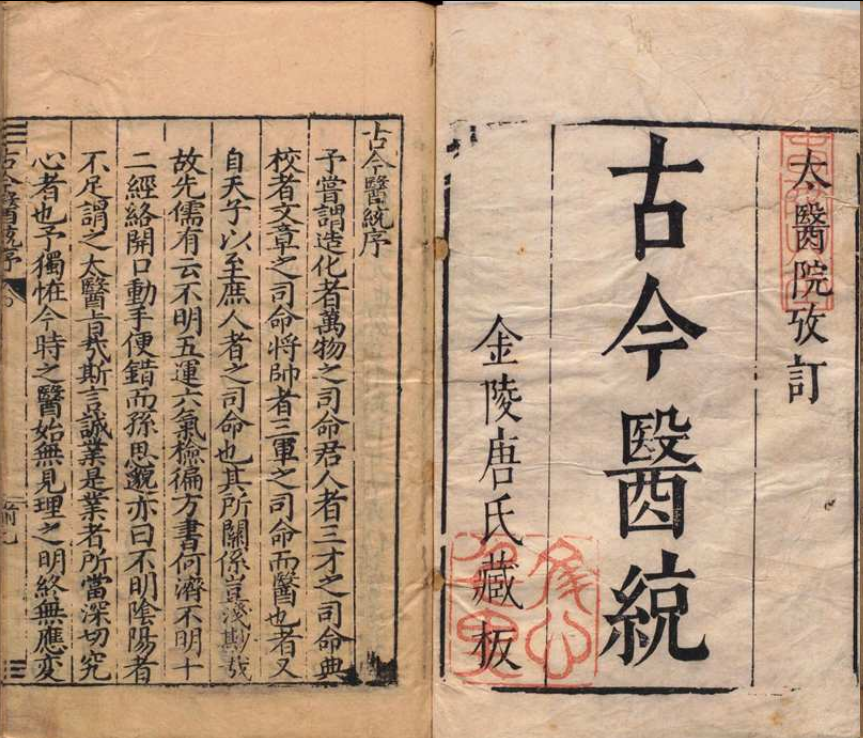 太醫院攷訂
古今醫統
金陵唐氏藏板
古今醫統序
予嘗謂造化者萬物之司命君人者三才之司命典
校者文章之司命将帥者三軍之司命而醫也者又
自天子以至庶人者之司命也其所關係豈淺尠哉
故先儒有云不明五運六氣檢徧方書何濟不明十
二經絡開口動手便錯而孫思邈亦曰不明陰陽者
不足謂之太醫旨㢤斯言誠業是業者所當深切究
心者也予獨恠今時之醫始無見理之明終無應変
古今醫統序